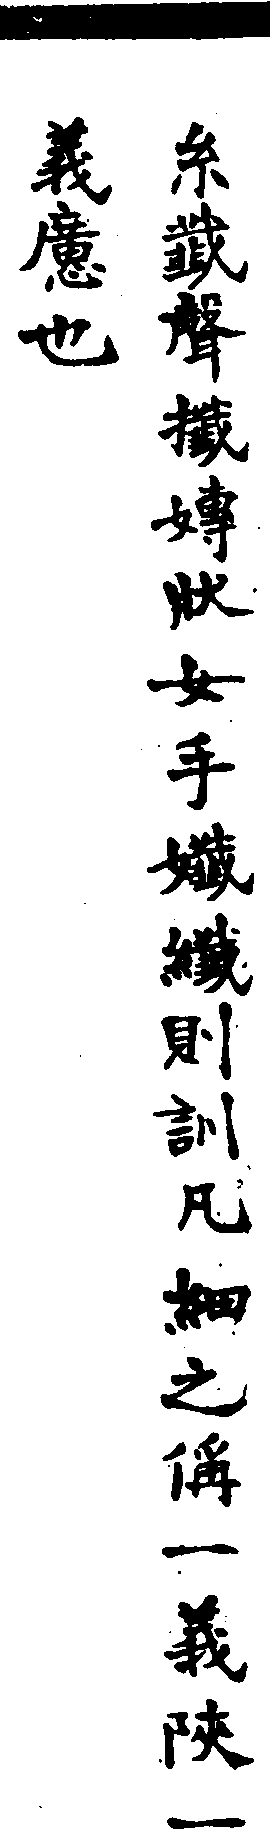 糸韱聲攕嫥狀女手孅纖則訓凡細之偁一義陜一
義廔也